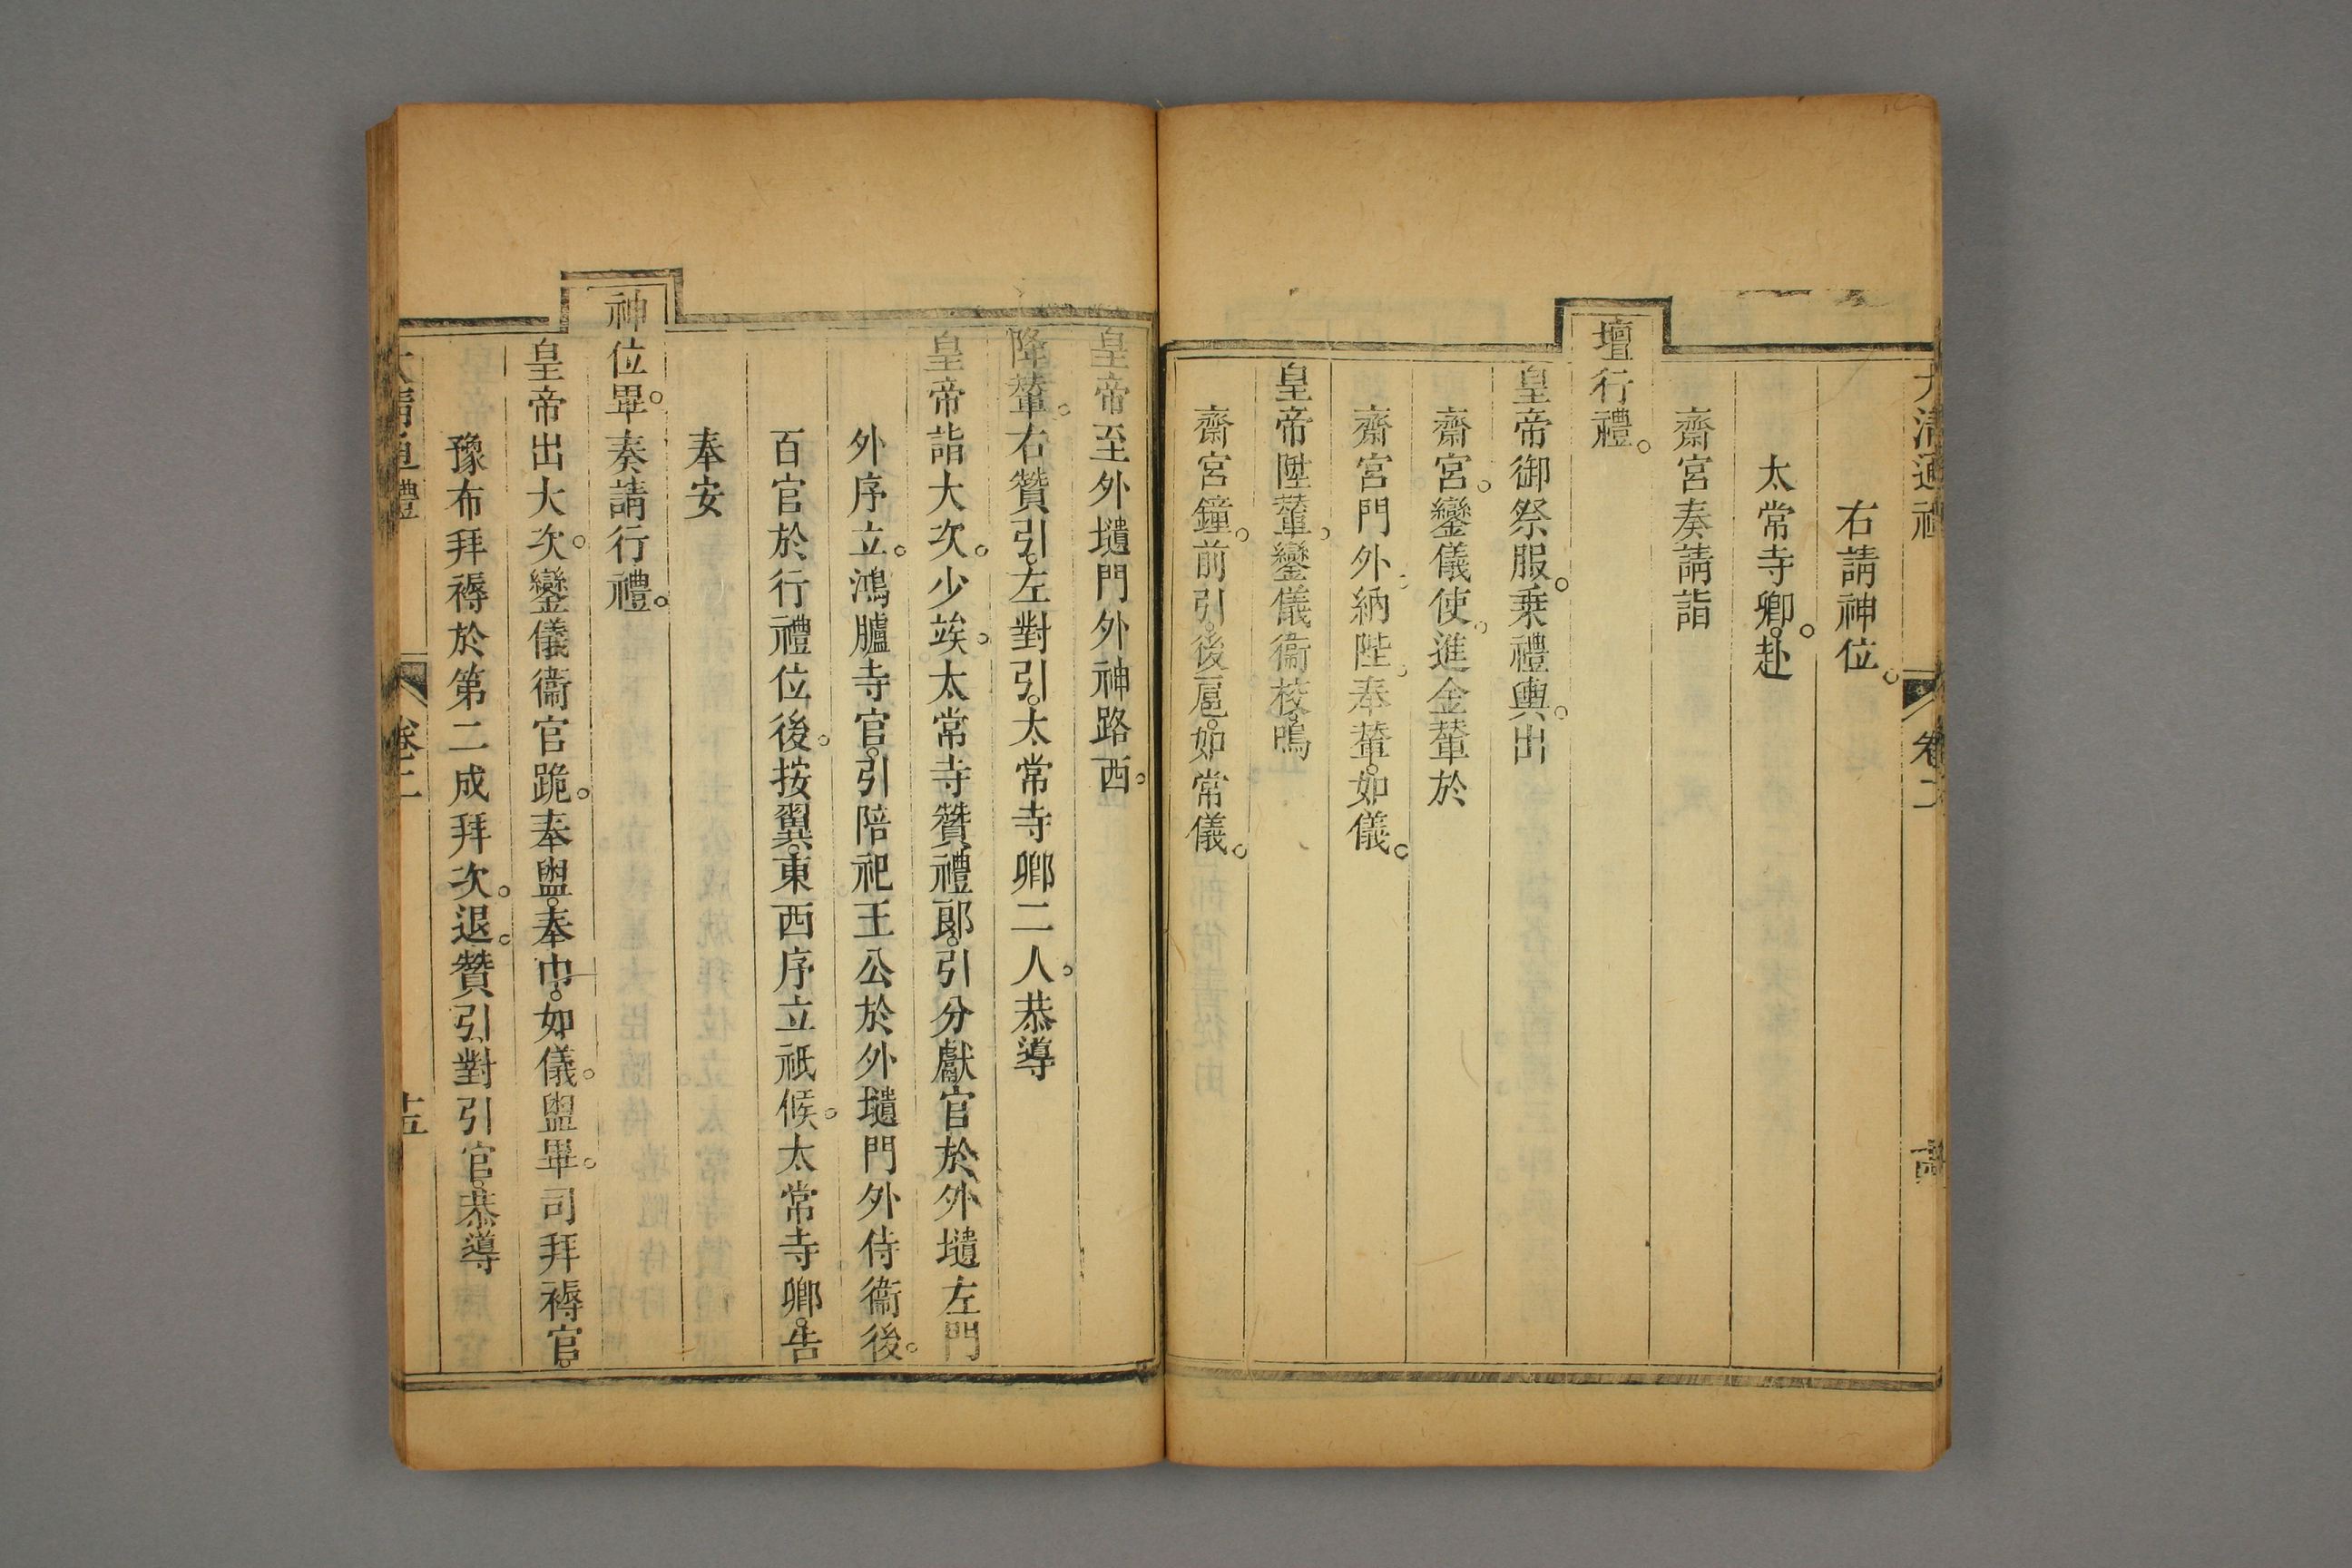 大清通禮 卷二 十四
右請神位。
太常寺卿。赴
齋宮奏請詣
壇行禮。
皇帝御祭服。乘禮輿。出
齋宮。鑾儀使。進金輦於
齋宮門外納陛。奉輦。如儀。
皇帝陞輦。鑾儀衞校。鳴
齋宮鐘。前引。後扈。如常儀。
皇帝至外壝門外神路西。
降輦。右贊引。左對引。太常寺卿二人。恭導
皇帝詣大次。少竢。太常寺贊禮郎。引分獻官於外壝左門
外序立。鴻臚寺官。引陪祀王公於外壝門外侍衞後。
百官於行禮位後。按翼。東西序立祇候。太常寺卿。告
奉安
神位畢。奏請行禮。
皇帝出大次。鑾儀衞官跪。奉盥。奉巾。如儀。盥畢。司拜褥官。
豫布拜褥於第二成拜次。退。贊引對引官。恭導
大清通禮 卷二 十五